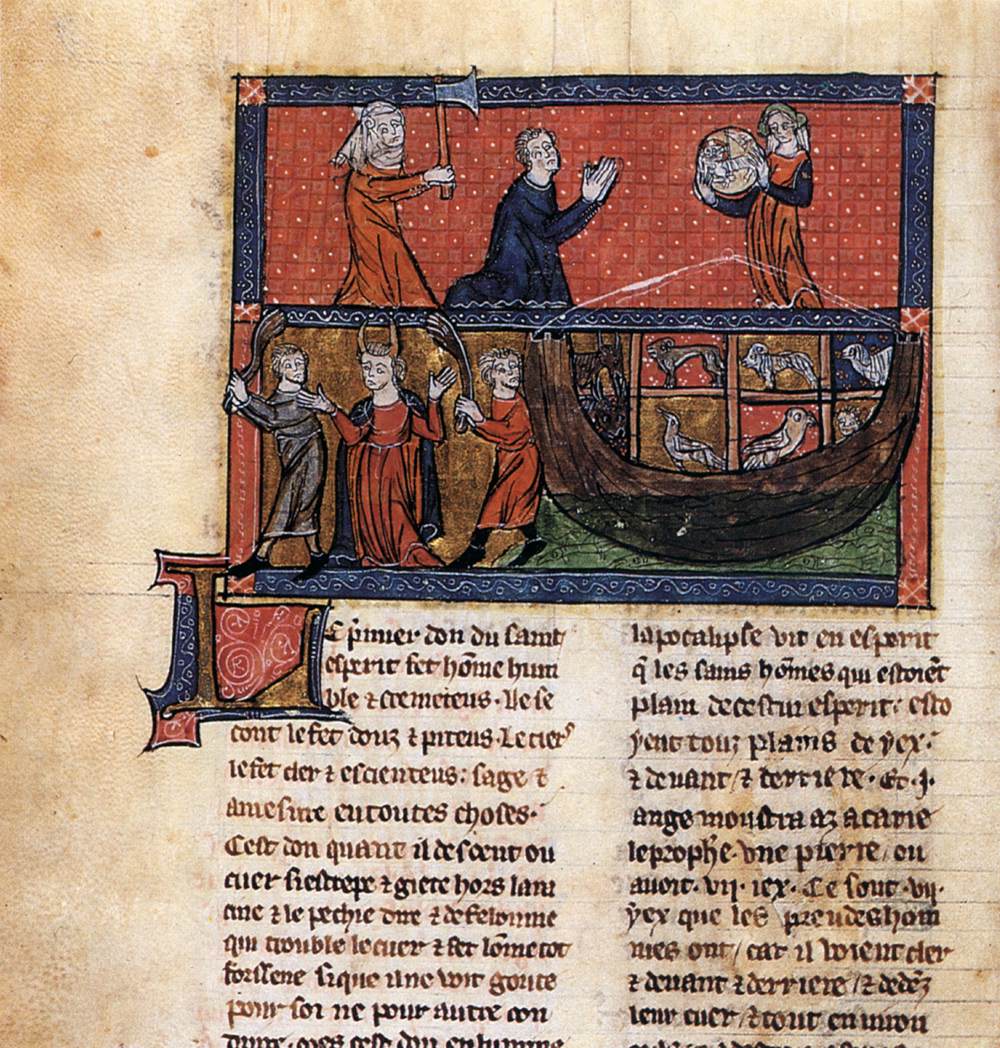 Le p̃mier don du saint
esperit fet hõme hum
ble ⁊ cremeteus. Le se
cont le fet douz ⁊ piteus. Le tierˢ
le fet cler ⁊ escienteus: sage ⁊
amesure en toutes choses.
Cest don quant il descent ou
cuer si estrepe ⁊ giete hors lara
cine ⁊ le pechie dire ⁊ de felonnie
qui trouble le cuer ⁊ fet lõme tot
forssene si que il ne voit goute
pour soi ne pour autre con
duire. mes cest don enlumine
lapocalipse vit en esperit
q̃ les sains hõmes qui estoiẽt
plain de cestui esperit. esto
yent touz plains de yex.
⁊ deuant / ⁊ derriere. Et .J.
ange moustra a zacarie
le prophẽ. vne pierre / ou
auoit .vij. iex. Ce sont .vij.
yex que les preudeshom
mes ont / car il voient cler
⁊ deuant ⁊ derriere / ⁊ dedẽz
leur cuer / ⁊ tout enuiron